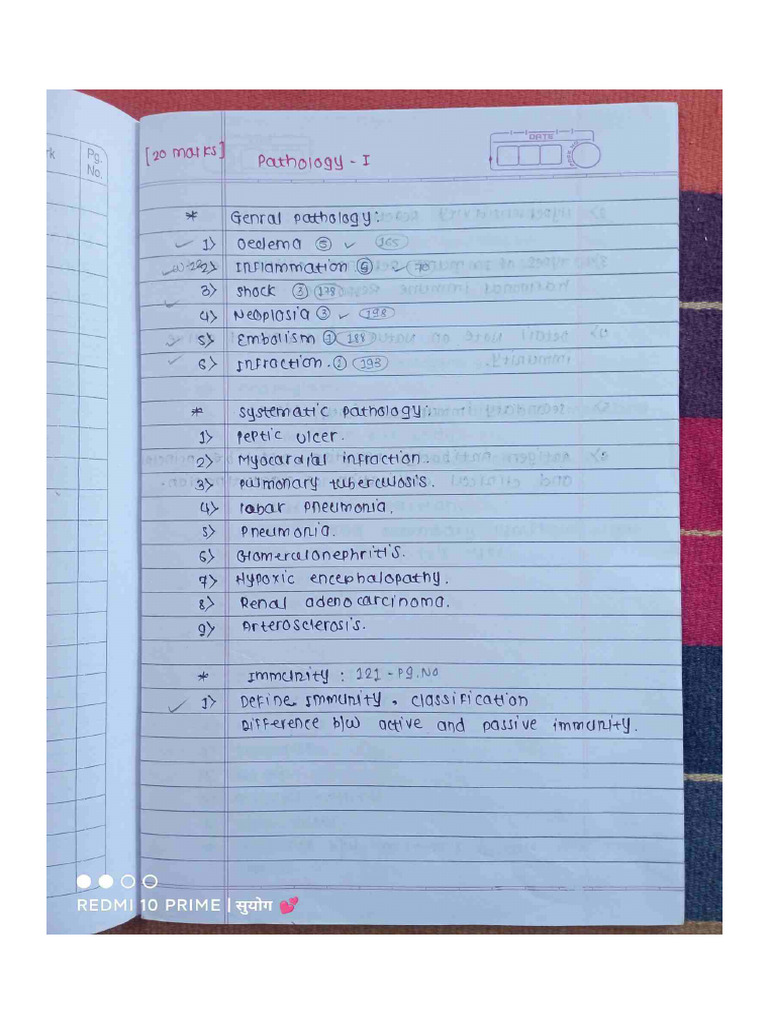 rk
Pg.
No.
[20 marks]
Pathology - I
DATE
* Genral pathology:
1) Oedema ⑤ ✓ 165
W-22 2) Inflammation ⑤ ✓ 70
3) shock ③ 178
4) Neoplasia ③ ✓ 198
5) Embolism ① 188
6) Infraction. ① 193
* Systematic pathology:
1) Peptic ulcer.
2) Myocardial infraction.
3) Pulmonary tuberculosis.
4) lobar pneumonia.
5) Pneumonia.
6) Glomerulonephritis.
7) Hypoxic encephalopathy.
8) Renal adenocarcinoma.
9) Arterosclerosis.
* Immunity : 121 - Pg.No
1) Define Immunity, classification
Difference b/w active and passive immunity.
REDMI 10 PRIME | सुयोग 💕